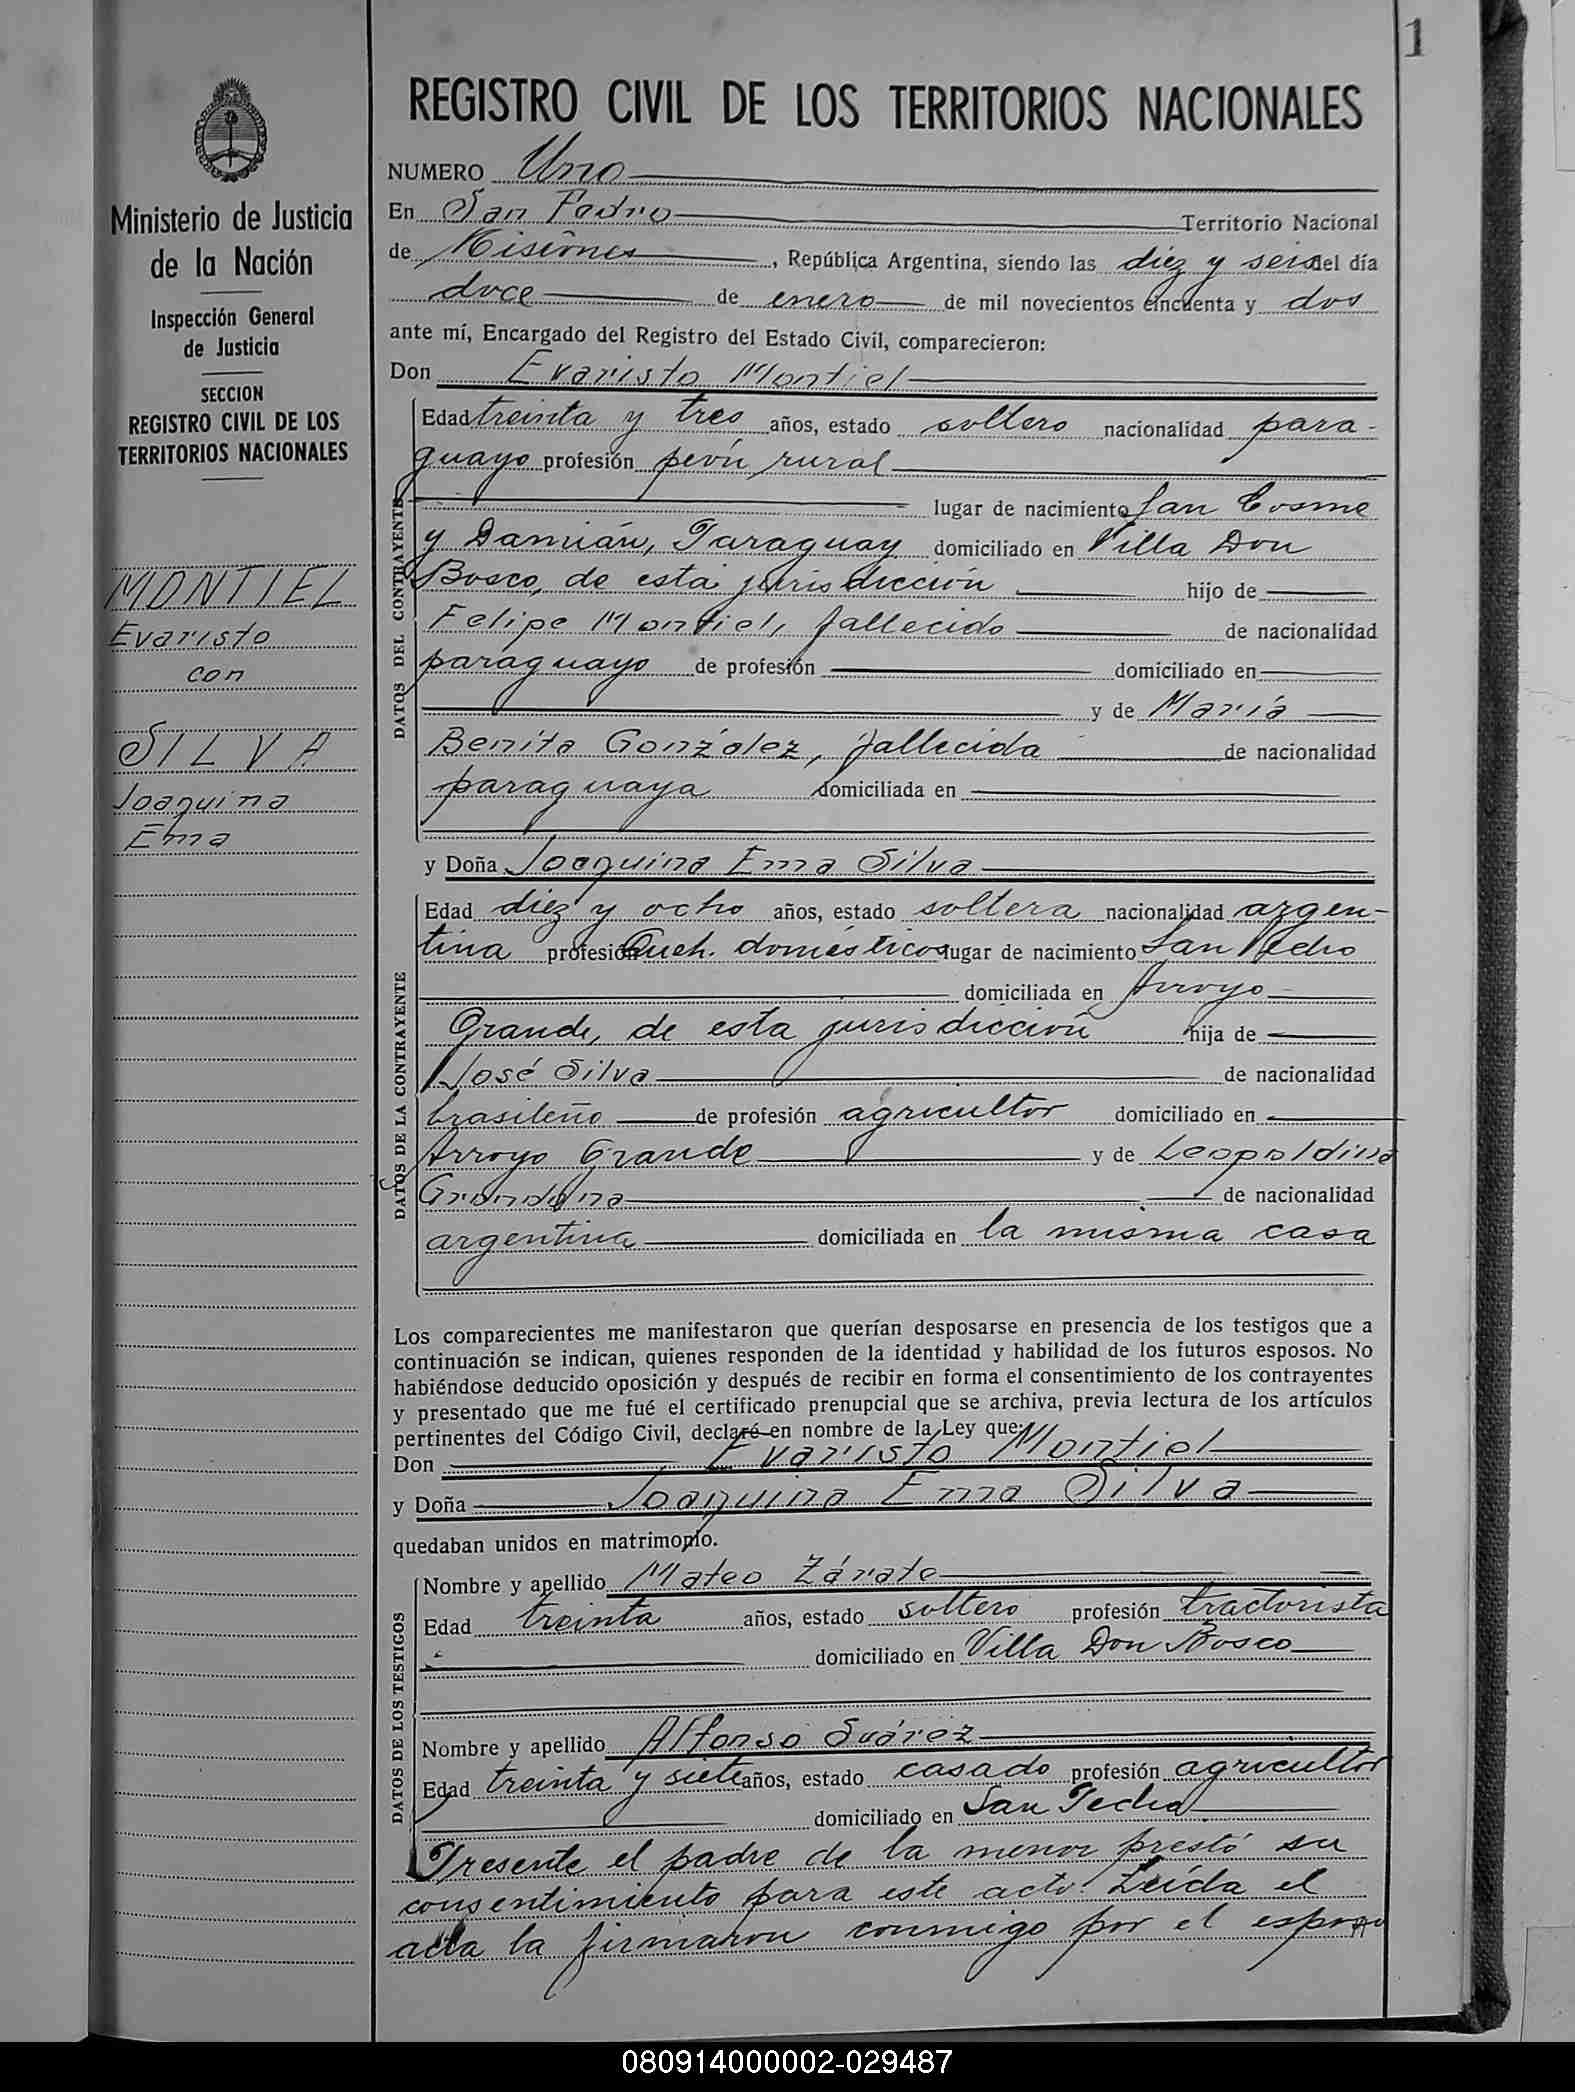 1
Ministerio de Justicia
de la Nación
Inspección General
de Justicia
SECCION
REGISTRO CIVIL DE LOS
TERRITORIOS NACIONALES
MONTIEL
Evaristo
con
SILVA
Joaquina
Ema
REGISTRO CIVIL DE LOS TERRITORIOS NACIONALES
NUMERO Uno
En San Pedro Territorio Nacional
de Misiones, República Argentina, siendo las diez y seis del día
doce de enero de mil novecientos cincuenta y dos
ante mí, Encargado del Registro del Estado Civil, comparecieron:
Don Evaristo Montiel
DATOS DEL CONTRAYENTE
Edad treinta y tres años, estado soltero nacionalidad para-
guayo profesión peón rural
lugar de nacimiento San Cosme
y Damián, Paraguay domiciliado en Villa Don
Bosco, de esta jurisdicción hijo de
Felipe Montiel, fallecido de nacionalidad
paraguayo de profesión domiciliado en
y de María
Benita González, fallecida de nacionalidad
paraguaya domiciliada en
y Doña Joaquina Ema Silva
DATOS DE LA CONTRAYENTE
Edad diez y ocho años, estado soltera nacionalidad argen-
tina profesión Queh. domésticos lugar de nacimiento San Pedro
domiciliada en Arroyo
Grande, de esta jurisdicción hija de
José Silva de nacionalidad
brasileño de profesión agricultor domiciliado en
Arroyo Grande y de Leopoldina
de nacionalidad
argentina domiciliada en la misma casa
Los comparecientes me manifestaron que querían desposarse en presencia de los testigos que a
continuación se indican, quienes responden de la identidad y habilidad de los futuros esposos. No
habiéndose deducido oposición y después de recibir en forma el consentimiento de los contrayentes
y presentado que me fué el certificado prenupcial que se archiva, previa lectura de los artículos
pertinentes del Código Civil, declaré en nombre de la Ley que:
Don Evaristo Montiel
y Doña Joaquina Ema Silva
quedaban unidos en matrimonio.
DATOS DE LOS TESTIGOS
Nombre y apellido Mateo Zárate
Edad treinta años, estado soltero profesión tractorista
domiciliado en Villa Don Bosco
Nombre y apellido Alfonso Suárez
Edad treinta y siete años, estado casado profesión agricultor
domiciliado en San Pedro
Presente el padre de la menor prestó su
consentimiento para este acto. Leída el
acta la firmaron conmigo por el esposo
080914000002-029487